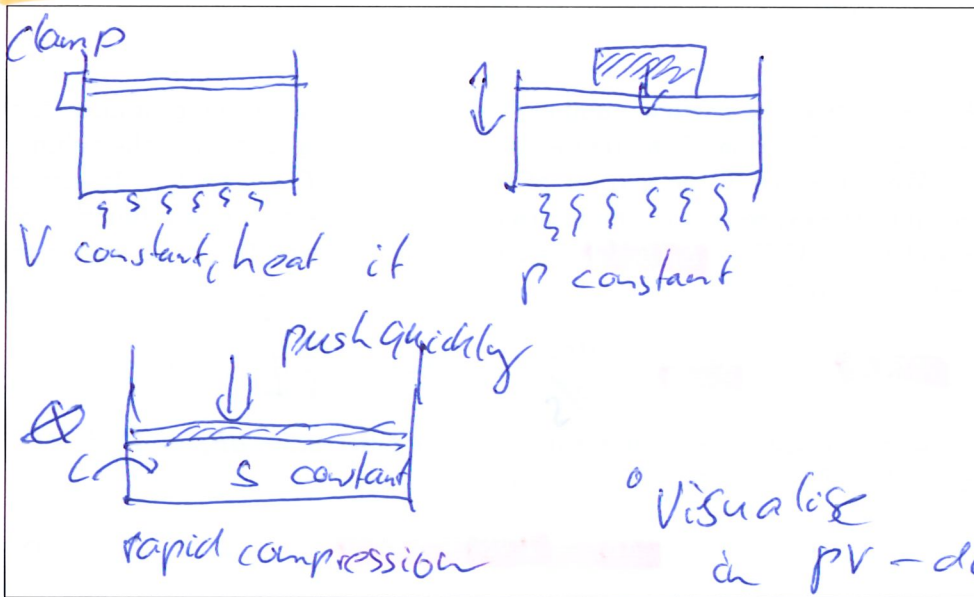 Clamp
V constant, heat it
p constant
push quickly
S constant
rapid compression
Visualise
in pV-